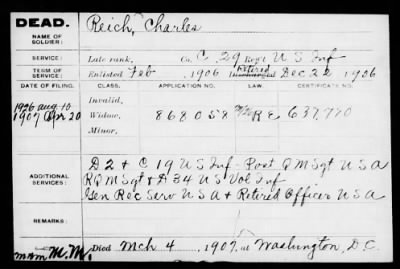 DEAD.
Reich, Charles
NAME OF SOLDIER:
SERVICE: Late rank, Co. C 29 Reg't U S Inf
TERM OF SERVICE: Enlisted Feb , 1906 Retired Discharged Dec 22 , 1906
DATE OF FILING. CLASS. APPLICATION NO. LAW. CERTIFICATE NO.
Invalid,
1926 Aug. 10
1907 Apr 20 Widow, 868058 R E 637,770
Minor,
ADDITIONAL SERVICES: D 2 & C 19 U S Inf - Post Q M Sgt U S A
R Q M Sgt & A 34 U S Vol Inf
Gen Rec Serv U S A & Retired Officer U S A
REMARKS:
M.M. Died Mch 4 , 1907, at Washington, D.C.